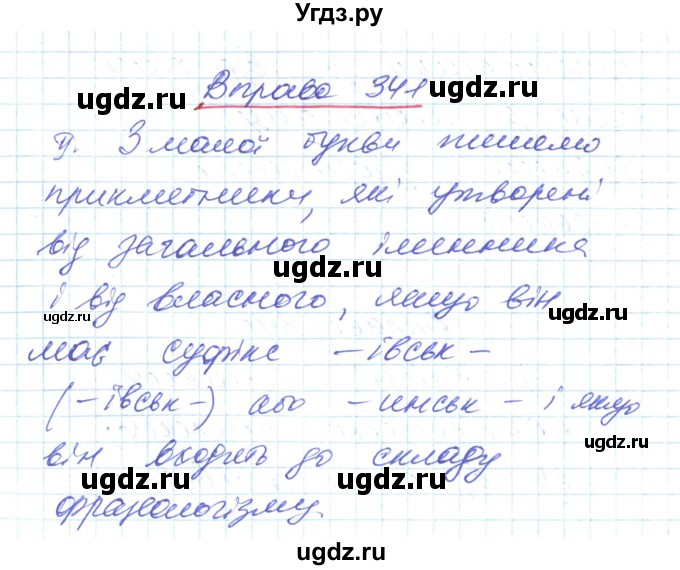 Угдз.ру
Вправа 341
ugdz.ru ugdz.ru
У. З малої букви пишемо
прикметники, які утворені
ugdz.ru ugdz.ru
від загального іменника
ugdz.ru
і від власного, якщо він
ugdz.ru ugdz.ru
має суфікс -івськ-
ugdz.ru
(-ївськ-) або -инськ- і якщо
ugdz.ru ugdz.ru
він входить до складу
ugdz.ru ugdz.ru
фразеологізму.
ugdz.ru